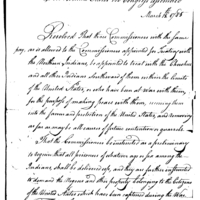 United States in Congress Assembled
March 15th 1785
Resolved That three Commissioners with the same
pay, as is allowed to the Commissioners appointed for Treating with the
Northern Indians, be appointed to treat with the Cherokees
and all other Indians Southward of them within the limits
of the United States, or who have been at war with them,
for the purpose of making peace with them, receiving them
into the favour and protection of the United States, and removing
as far as may be all causes of future contention or quarrels.
That the Commissioners be instructed as a preliminary
to require that all prisoners of whatever age or sex among the
Indians, shall be delivered up, and they are further instructed
to demand the Negroes and other property belonging to the Citizens
of the United States which have been captured during the War